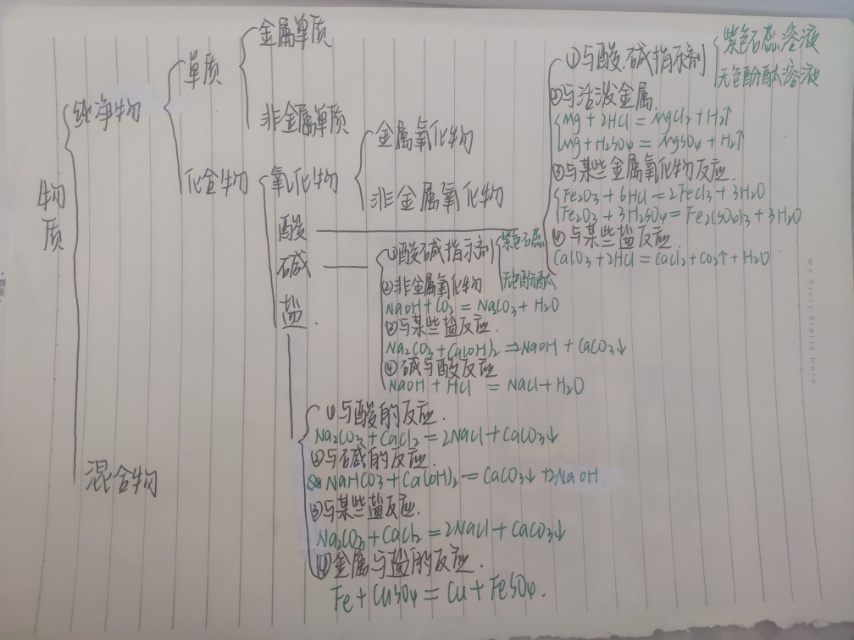 物质
纯净物
单质
金属单质
非金属单质
化合物
氧化物
金属氧化物
非金属氧化物
酸
①与酸碱指示剂
紫色石蕊溶液
无色酚酞溶液
②与活泼金属.
Mg + 2HCl = MgCl2 + H2↑
Mg + H2SO4 = MgSO4 + H2↑
③与某些金属氧化物反应.
Fe2O3 + 6HCl = 2FeCl3 + 3H2O
Fe2O3 + 3H2SO4 = Fe2(SO4)3 + 3H2O
④与某些盐反应.
CaCO3 + 2HCl = CaCl2 + CO2↑ + H2O
碱
①酸碱指示剂
紫色石蕊
无色酚酞
②非金属氧化物
NaOH + CO2 = Na2CO3 + H2O
③与某些盐反应.
Na2CO3 + Ca(OH)2 = 2NaOH + CaCO3↓
④碱与酸反应
NaOH + HCl = NaCl + H2O
盐.
①与酸的反应.
Na2CO3 + CaCl2 = 2NaCl + CaCO3↓
②与碱的反应.
NaHCO3 + Ca(OH)2 = CaCO3↓ + 2NaOH
③与某些盐反应.
Na2CO3 + CaCl2 = 2NaCl + CaCO3↓
④金属与盐的反应.
Fe + CuSO4 = Cu + FeSO4.
混合物
My Story Starts Here